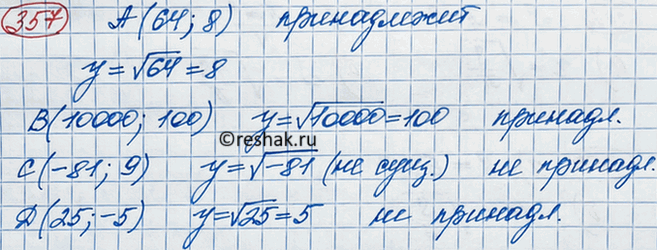 357 A(64; 8) принадлежит
y = √64 = 8
B(10000; 100) y = √10000 = 100 принадл.
©reshak.ru
C(-81; 9) y = √-81 (не сущ.) не принадл.
D(25; -5) y = √25 = 5 не принадл.